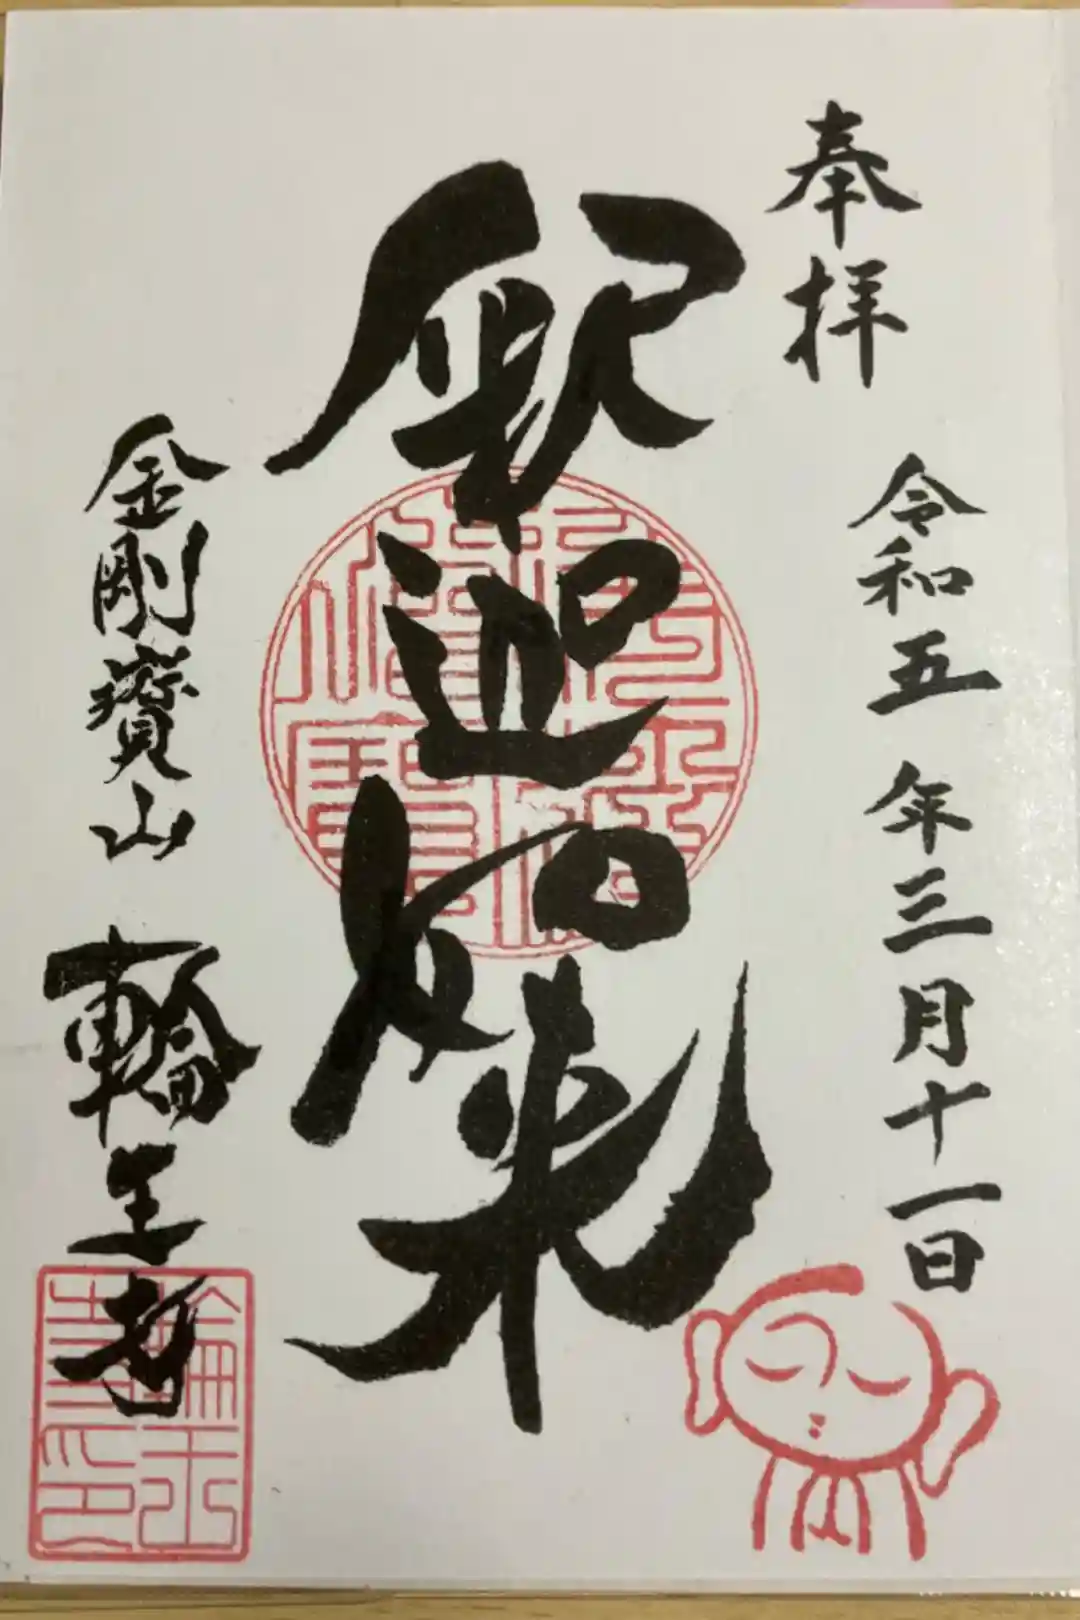 奉拝
令和五年三月十一日
釈迦如来
金剛寳山 輪王寺
輪王
寺印